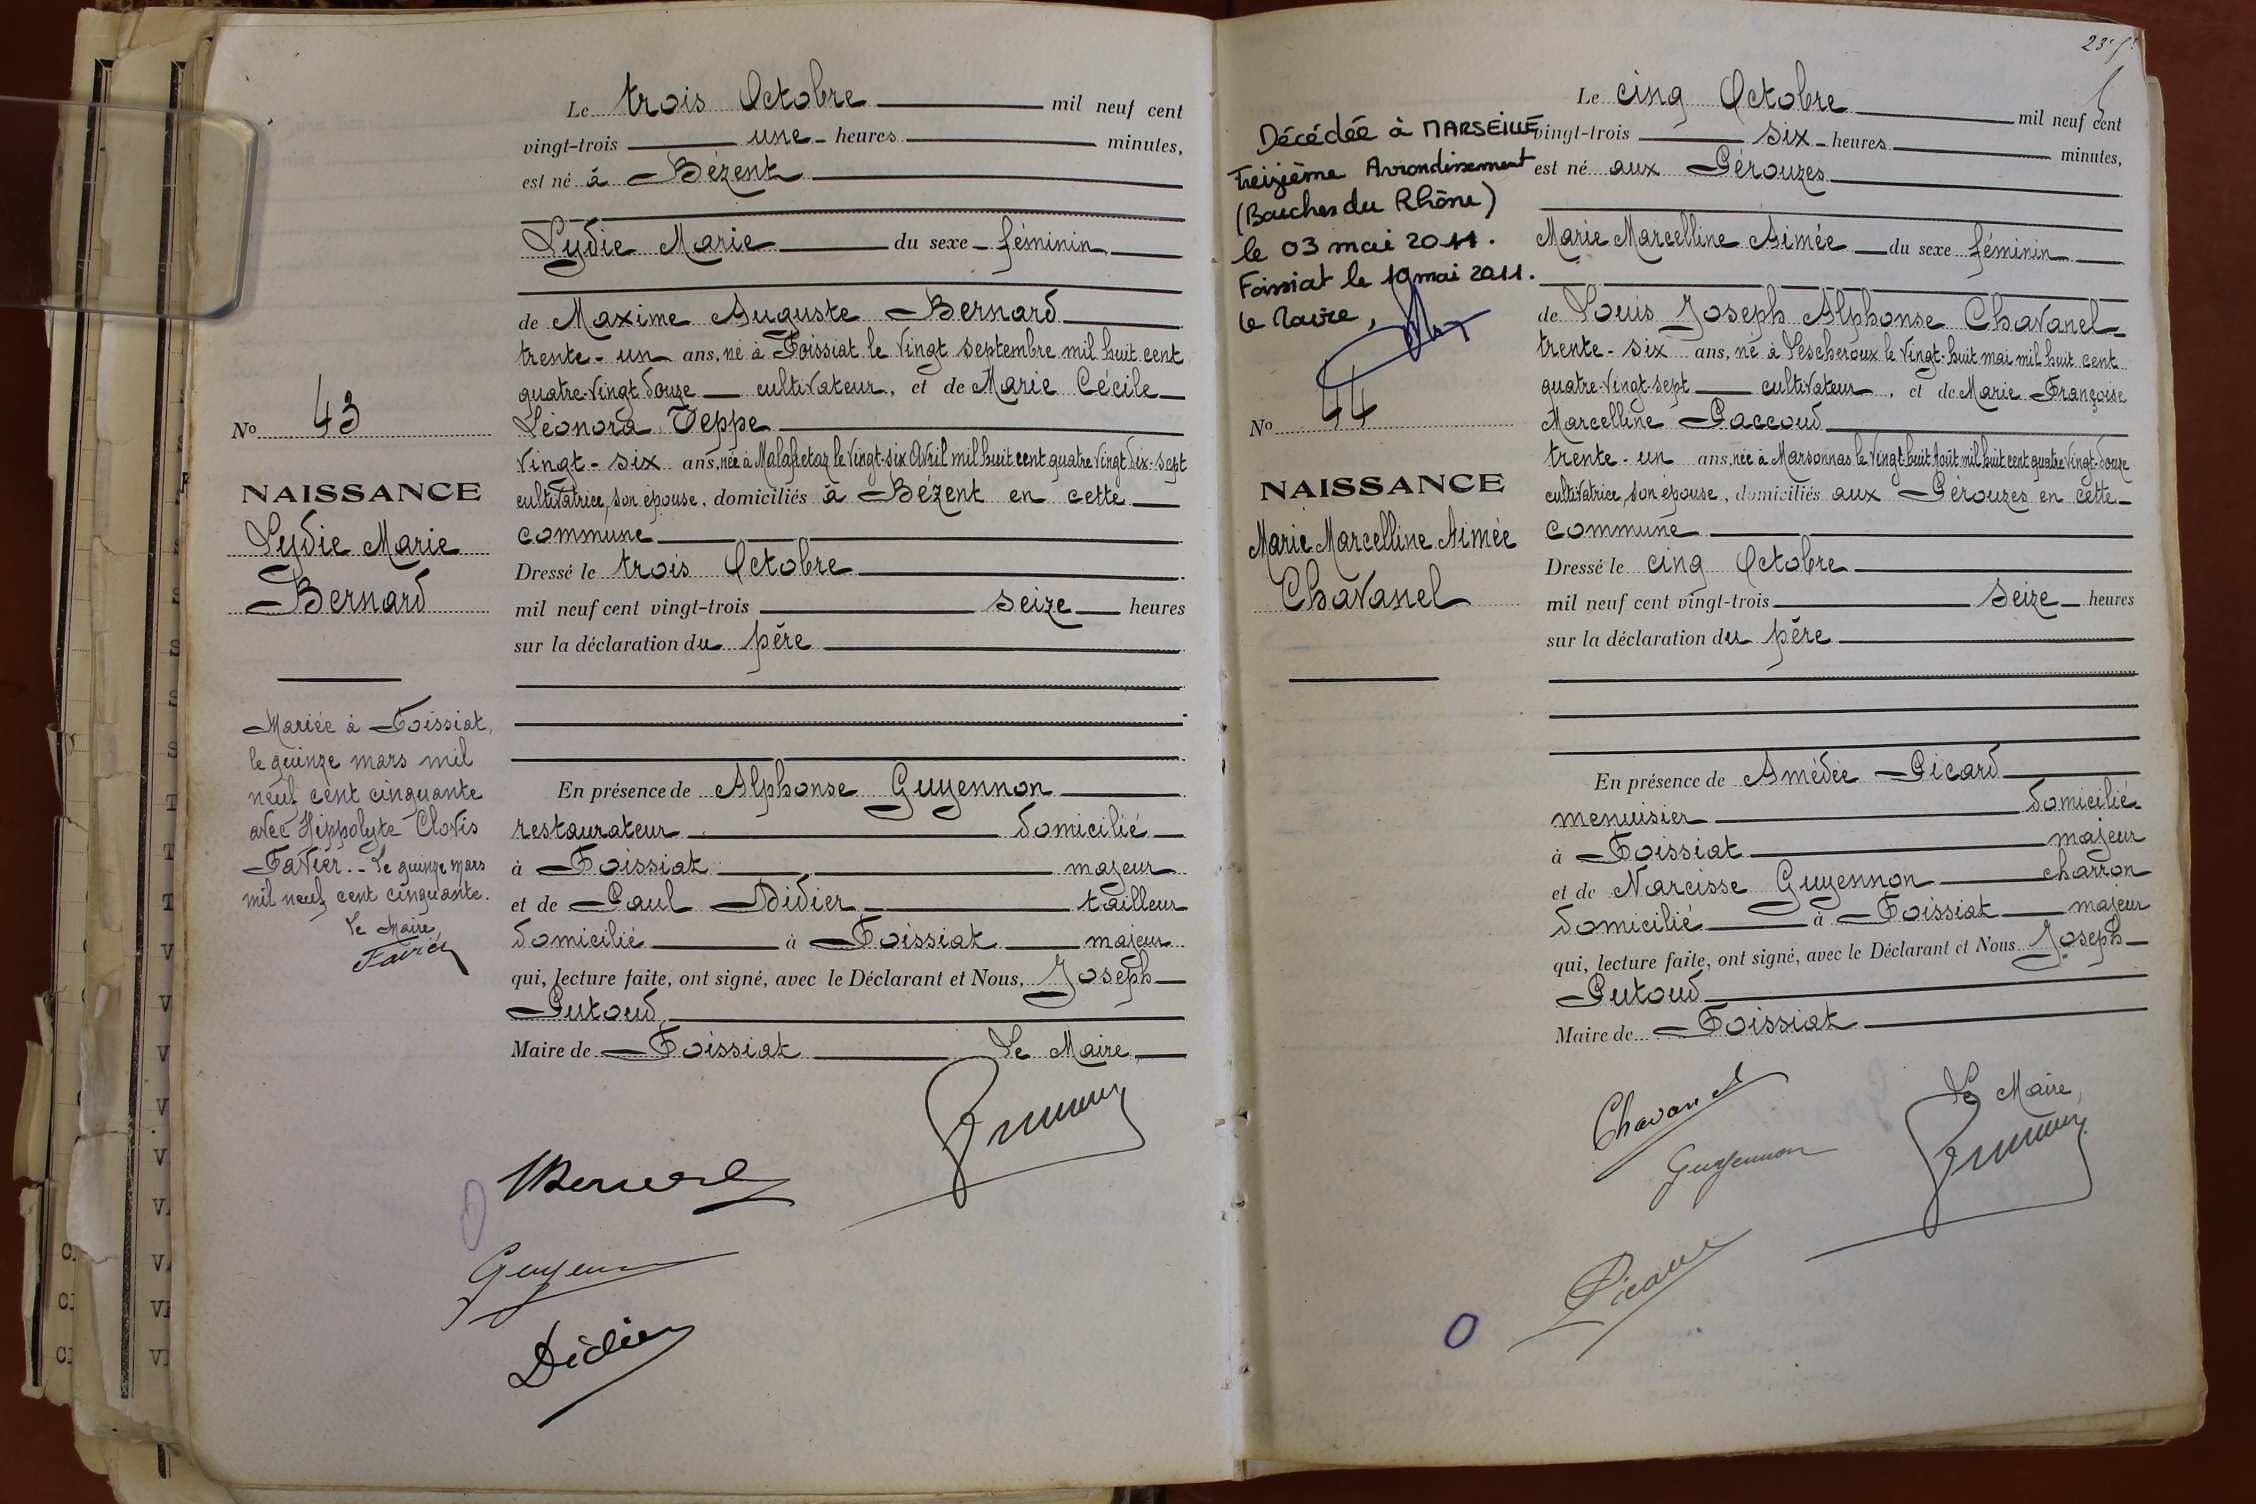 Le trois Octobre mil neuf cent
vingt-trois une heures minutes,
est né à Bézent
Lydie Marie du sexe féminin
de Maxime Auguste Bernard
trente-un ans, né à Foissiat le vingt septembre mil huit cent
quatre-vingt douze cultivateur, et de Marie Cécile
Léonora Teppe
vingt-six ans, née à Malafretaz le vingt-six Avril mil huit cent quatre vingt dix-sept
cultivatrice, son épouse, domiciliés à Bézent en cette
commune
Dressé le trois Octobre
mil neuf cent vingt-trois seize heures
sur la déclaration du père
En présence de Alphonse Guyennon
restaurateur domicilié
à Foissiat majeur
et de Paul Didier tailleur
domicilié à Foissiat majeur
qui, lecture faite, ont signé, avec le Déclarant et Nous, Joseph
Putoud
Maire de Foissiat Le Maire,
No 43
NAISSANCE
Lydie Marie
Bernard
Mariée à Foissiat,
le quinze mars mil
neuf cent cinquante
avec Hippolyte Clovis
Favier.- Le quinze mars
mil neuf cent cinquante.
Le Maire,
Favier
Bernard
Guyennon
Didier
Le cinq Octobre mil neuf cent
vingt-trois six heures minutes,
est né aux Pérouzes
Marie Marcelline Aimée du sexe féminin
de Louis Joseph Alphonse Chavanel
trente-six ans, né à Lescheroux le vingt-huit mai mil huit cent
quatre-vingt-sept cultivateur, et de Marie Françoise
Marcelline Paccoud
trente-un ans, née à Marsonnas le vingt-huit Août mil huit cent quatre vingt-douze
cultivatrice, son épouse, domiciliés aux Pérouzes en cette
commune
Dressé le cinq Octobre
mil neuf cent vingt-trois seize heures
sur la déclaration du père
En présence de Amédée Picard
menuisier domicilié
à Foissiat majeur
et de Narcisse Guyennon charron
domicilié à Foissiat majeur
qui, lecture faite, ont signé, avec le Déclarant et Nous Joseph
Putoud
Maire de Foissiat
Le Maire,
Décédée à MARSEILLE
Treizième Arrondissement
(Bouches du Rhône)
le 03 mai 2011.
Foissiat le 19 mai 2011.
Le Maire,
No 44
NAISSANCE
Marie Marcelline Aimée
Chavanel
Chavanel
Guyennon
Picard